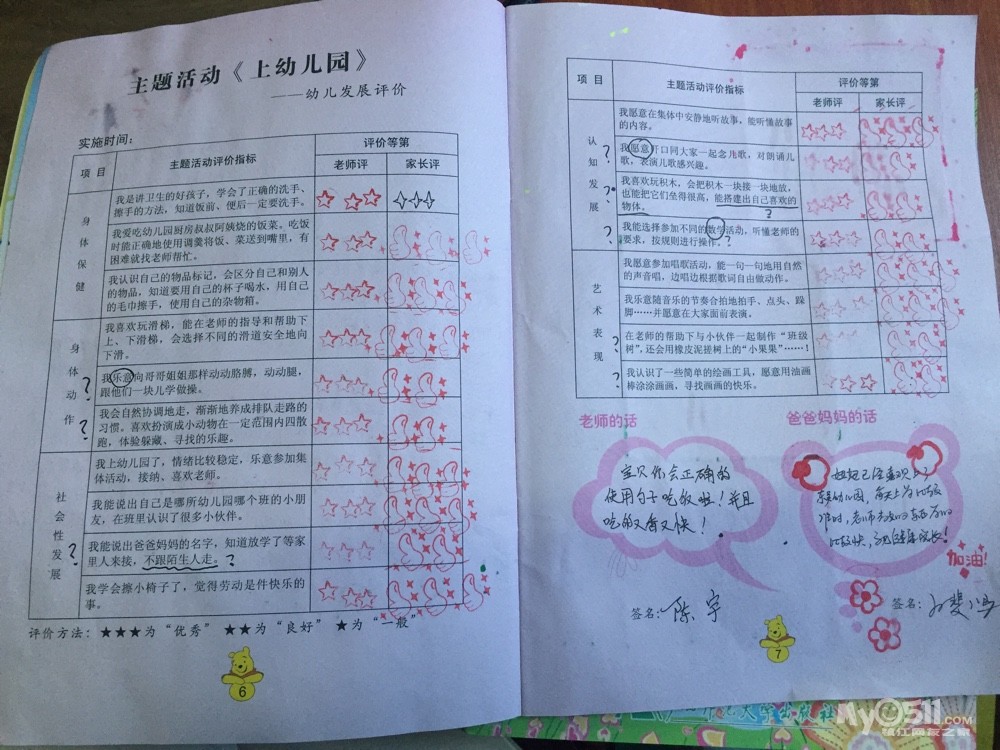 主题活动《上幼儿园》
——幼儿发展评价
实施时间：
项目
主题活动评价指标
评价等第
老师评
家长评
身体保健
我是讲卫生的好孩子，学会了正确的洗手、
擦手的方法，知道饭前、便后一定要洗手。
我爱吃幼儿园厨房叔叔阿姨烧的饭菜。吃饭
时能正确地使用调羹将饭、菜送到嘴里，有
困难就找老师帮忙。
我认识自己的物品标记，会区分自己和别人
的物品，知道要用自己的杯子喝水，用自己
的毛巾擦手，使用自己的杂物箱。
身体动作
我喜欢玩滑梯，能在老师的指导和帮助下
上、下滑梯，会选择不同的滑道安全地向
下滑。
?
我乐意向哥哥姐姐那样动动胳膊，动动腿，
跟他们一块儿学做操。
?
我会自然协调地走，渐渐地养成排队走路的
习惯。喜欢扮演成小动物在一定范围内四散
跑，体验躲藏、寻找的乐趣。
社会性发展
我上幼儿园了，情绪比较稳定，乐意参加集
体活动，接纳、喜欢老师。
我能说出自己是哪所幼儿园哪个班的小朋
友，在班里认识了很多小伙伴。
?
我能说出爸爸妈妈的名字，知道放学了等家
里人来接，不跟陌生人走。?
我学会擦小椅子了，觉得劳动是件快乐的
事。
评价方法：★★★为“优秀” ★★为“良好” ★为“一般”
6
项目
主题活动评价指标
评价等第
老师评
家长评
认知发展
我愿意在集体中安静地听故事，能听懂故事
的内容。
?
我愿意开口同大家一起念儿歌，对朗诵儿
歌，表演儿歌感兴趣。
?
我喜欢玩积木，会把积木一块接一块地放，
也能把它们垒得很高，能搭建出自己喜欢的
物体。?
?
我能选择参加不同的数学活动，听懂老师的
要求，按规则进行操作。?
艺术表现
我愿意参加唱歌活动，能一句一句地用自然
的声音唱，边唱边根据歌词自由做动作。
我乐意随音乐的节奏合拍地拍手、点头、跺
脚……并愿意在大家面前表演。
?
在老师的帮助下与小伙伴一起制作“班级
树”，还会用橡皮泥搓树上的“小果果”……！
?
我认识了一些简单的绘画工具，愿意用油画
棒涂涂画画，寻找画画的快乐。
老师的话
宝贝你会正确的
使用勺子吃饭啦！并且
吃的又香又快！
签名：陈宇
爸爸妈妈的话
幼儿园，每天上
加油!
签名：
7
My0511.COM
镇江网友之家